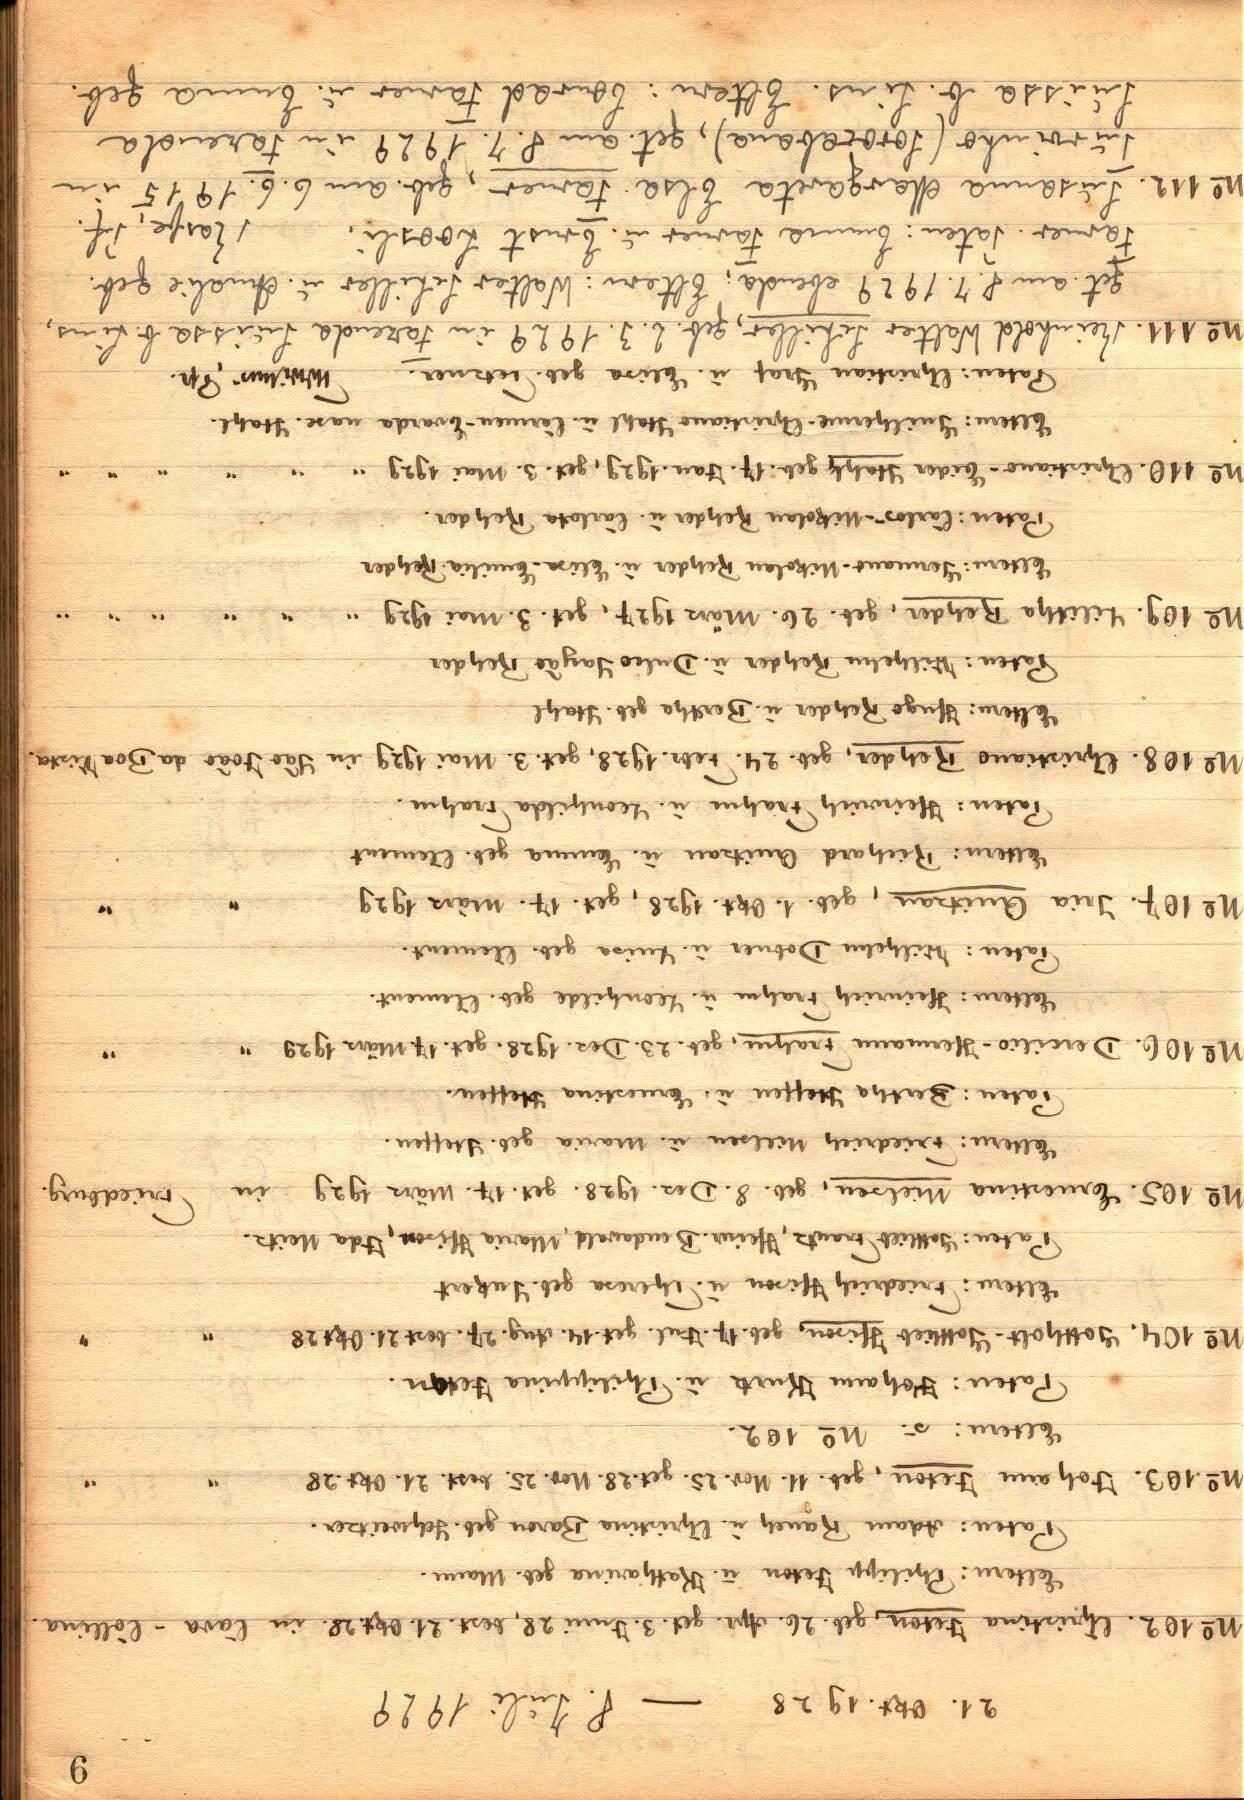 9
21. Okt. 1928 — 8. Juli 1929
No 102. Christina Jeton, geb. 26. Apr. get. 3. Juni 28, best. 21. Okt. 28. in Cava-Collina.
Eltern: Philipp Jeton u. Katharina geb. Mann.
Paten: Adam Rauch u. Christina Baron geb. Schweitzer.
No 103. Johann Jeton, geb. 11. Nov. 25. get. 28. Nov. 25. best. 21. Okt. 28 " "
Eltern: s. No 102.
Paten: Johann Kurtz u. Philippina Jeton.
No 104. Gottholt-Gottlieb Hison, geb. 17. Jul. get. 14. Aug. 27. best 21. Okt 28 " "
Eltern: Friedrich Hison u. Theresa geb. Jukert
Paten: Gottlieb Frantz, Heinr. Bendawald, Maria Hison, Ida Neitz.
No 105. Ernestina Nielsen, geb. 8. Dez. 1928. get. 17. März 1929 in Friedburg.
Eltern: Friedrich Nielsen u. Maria geb. Steffen.
Paten: Bertha Steffen u. Ernestina Steffen.
No 106. Dercilio-Hermann Frahm, geb. 23. Dez. 1928. get. 17. März 1929 " "
Eltern: Heinrich Frahm u. Leonhilde geb. Clement.
Paten: Wilhelm Dobner u. Luisa geb. Clement.
No 107. Iria Quitzau, geb. 1. Okt. 1928, get. 17. März 1929 " "
Eltern: Richard Quitzau u. Emma geb. Clement
Paten: Heinrich Frahm u. Leonhilda Frahm.
No 108. Christiano Rehder, geb. 24. Febr. 1928, get. 3. Mai 1929 in São João da Boa Vista.
Eltern: Hugo Rehder u. Bertha geb. Stahl
Paten: Wilhelm Rehder u. Dulce Sayão Rehder
No 109. Lilitha Rehder, geb. 26. März 1927, get. 3. Mai 1929 " " " " " "
Eltern: Germano-Nikolau Rehder u. Elisa-Emilia Rehder
Paten: Carlos-Nikolau Rehder u. Carlota Rehder.
No 110. Christiano-Eider Stahl, geb. 17. Jan. 1929, get. 3. Mai 1929 " " " " " "
Eltern: Guilherme-Christiano Stahl u. Carmen-Evarda nasc. Stahl.
Paten: Christian Graf u. Elisa geb. Tetzner. Pfr.
No 111. Reinhold Walter Schiller, geb. 2. 3. 1929 in Fazenda Suissa b. Lins,
get. am 8. 7. 1929 ebenda; Eltern: Walter Schiller u. Amalie geb.
Farner. Paten: Emma Farner u. Ernst Loosli. Raspe, Pf.
No 112. Susanna Margareta Elsa Farner, geb. am 6. 6. 1915 in
(Sorocabana), get. am 8. 7. 1929 in Fazenda
Suissa b. Lins. Eltern: Conrad Farner u. Emma geb.